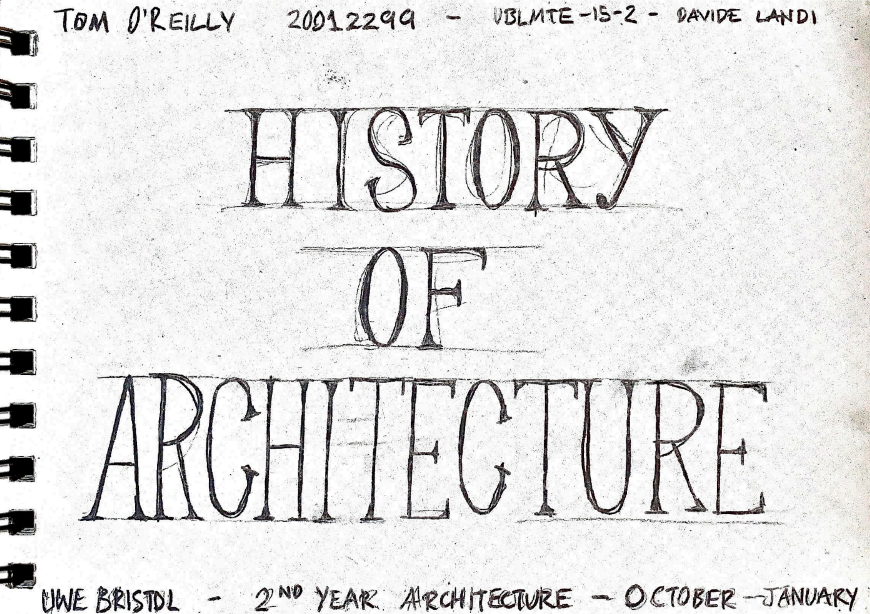 TOM O'REILLY 20012299 - UBLMTE-15-2 - DAVIDE LANDI
HISTORY
OF
ARCHITECTURE
UWE BRISTOL - 2ND YEAR ARCHITECTURE - OCTOBER - JANUARY